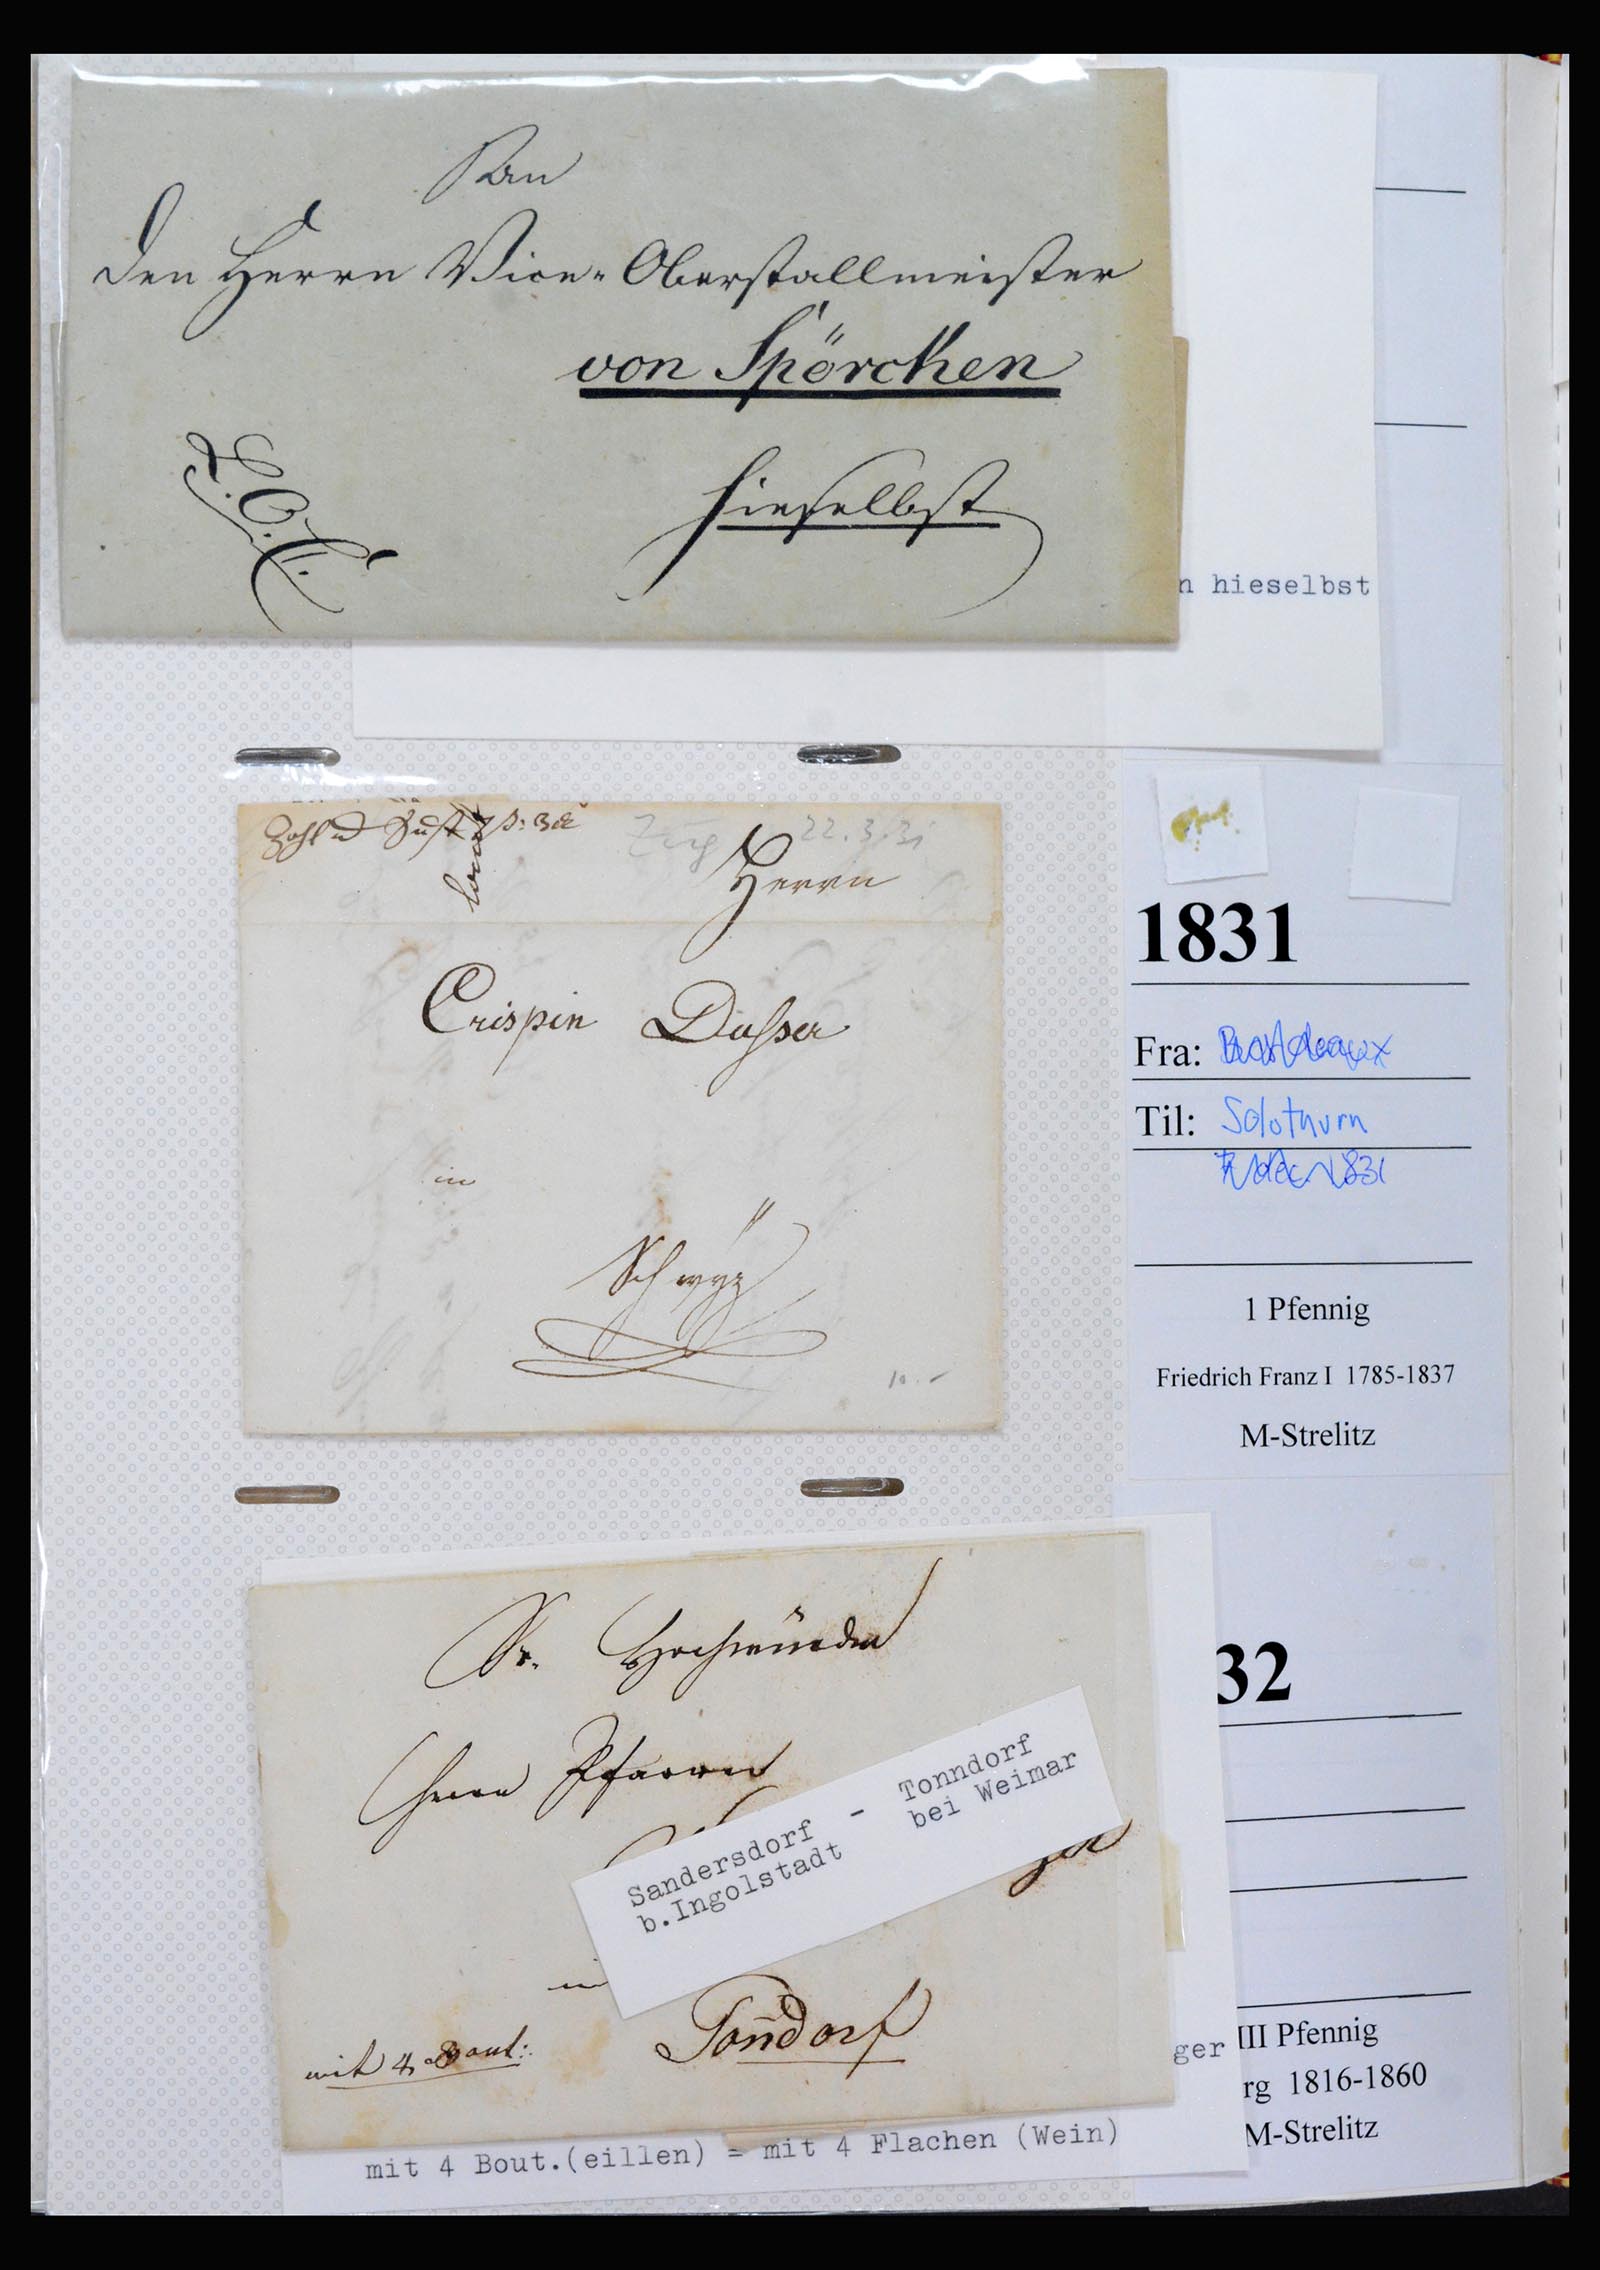 An
Den Herrn Vice-Oberstallmeister
von Spörcken
hieselbst
n hieselbst
Zug 22.3.31
Herrn
Crispin Dusser
in
Schwÿz
10.-
1831
Fra: Bordeaux
Til: Solothurn
1831
1 Pfennig
Friedrich Franz I 1785-1837
M-Strelitz
Sr. Hochwürden
Herrn Pfarrer
Sandersdorf - Tonndorf
b.Ingolstadt bei Weimar
in
Tondorf
mit 4 Bout:
ger
mit 4 Bout.(eillen) = mit 4 Flachen (Wein)
32
III Pfennig
rg 1816-1860
M-Strelitz